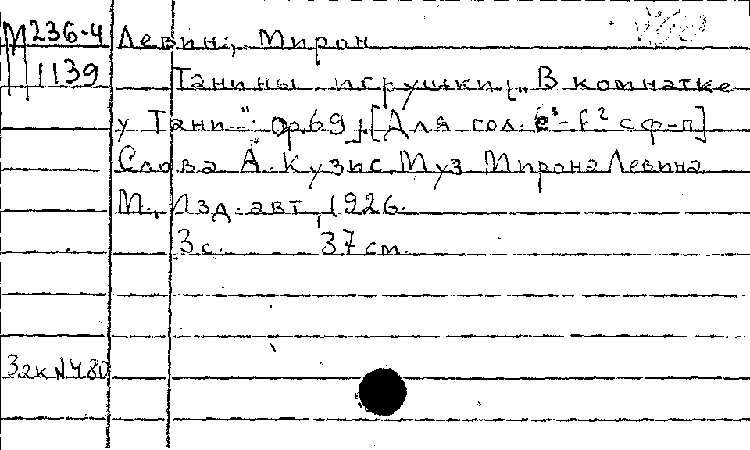 М 236-4 Левин, Мирон
1139 Танины игрушки. „В комнатке
у Тани": ор.69.[Для гол. e¹-f² с ф-п]
Слова А. Кузис. Муз Мирона Левина
М., Изд. авт, 1926.
3 с. 37 cm.
Зак № 480